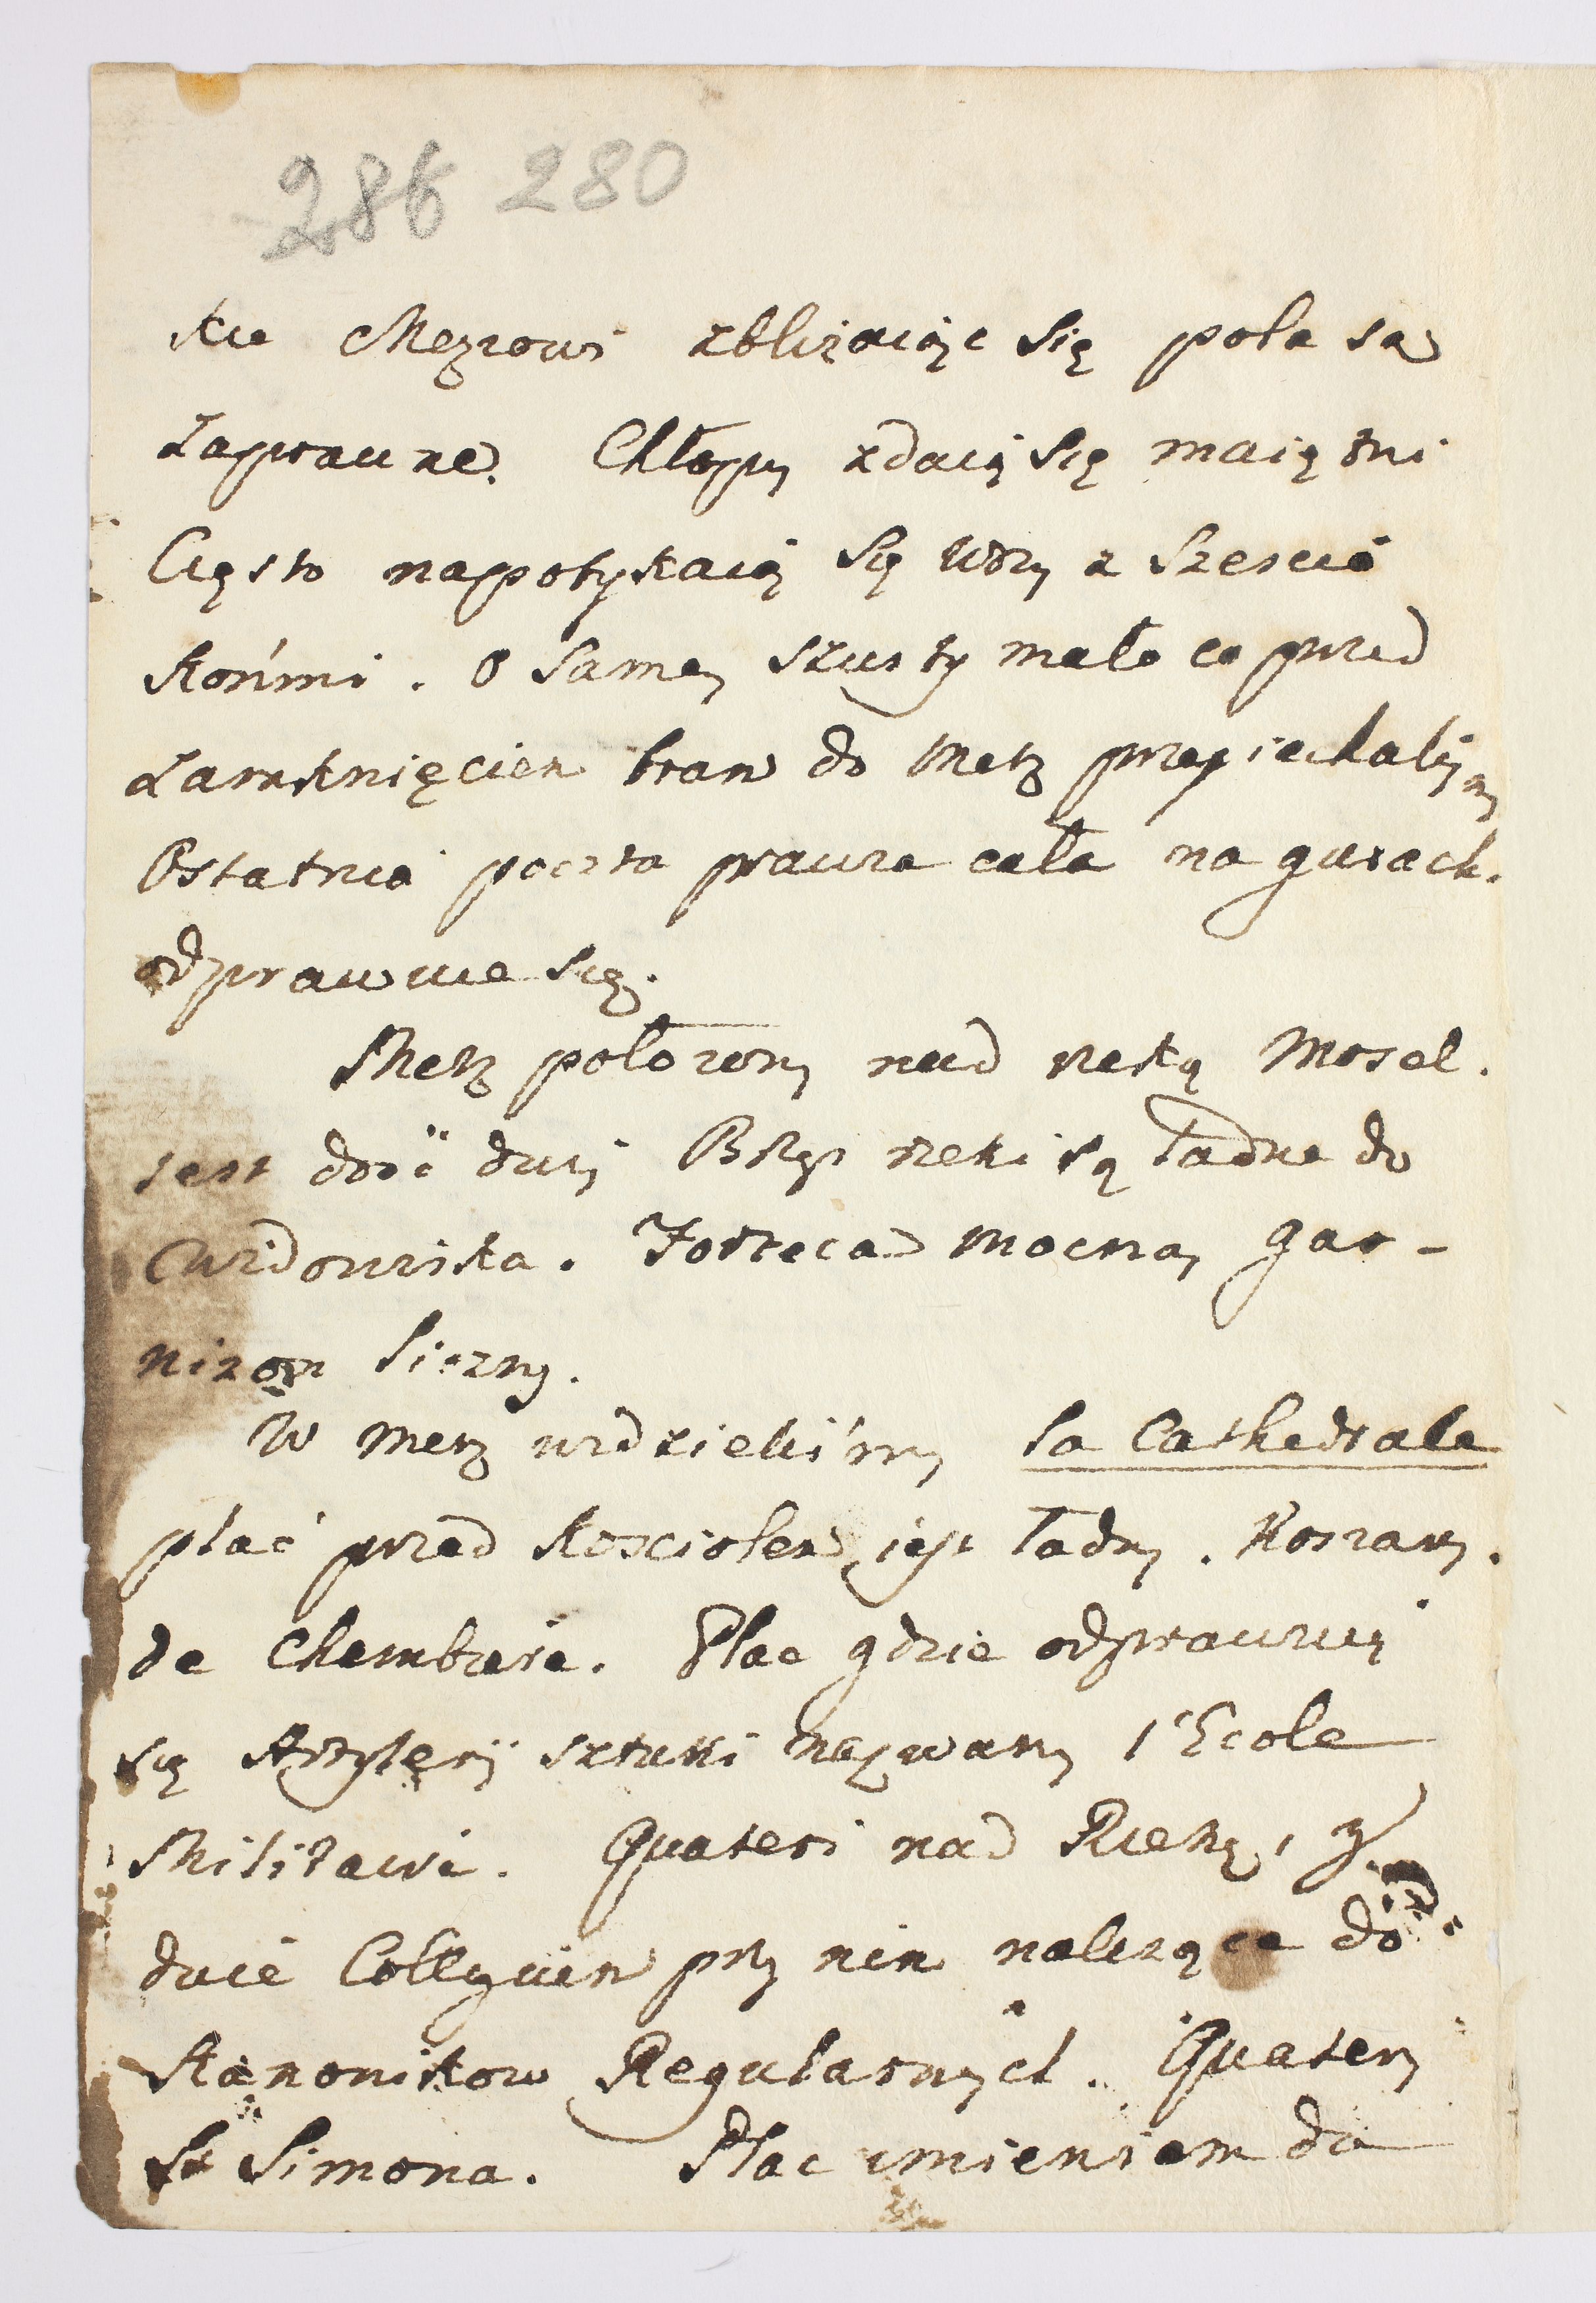 286 280
ku Mezowi zbliżaiąc się pola są
zaprawne. Chłopy zdaią się maiętni
Często napotykaią się wozy z sześcią
końmi. O samey szusty mało co przed
zamknięciem bram do Metz przyiechaliśmy
Ostatnia poczta prawie cała na gurach.
odprawuie się.
Metz położony nad rzeką Mosel.
iest dość duży Brzegi rzeki są ładne do
widowiska. Forteca mocna, gar-
nizon liczny.
W Metz widzieliśmy la Cathedrale
plac przed kosciołem iest ładny. Koszary.
de Chambiere. Plac gdzie odprawuią
się Artylerij sztuki nazwany l'Ecole
Militaire. Quateri nad Rzeką, y
dwie Collegium przy nim należące do
Kanonikow Regularnych. Quatery
St Simona. Plac imieniem de